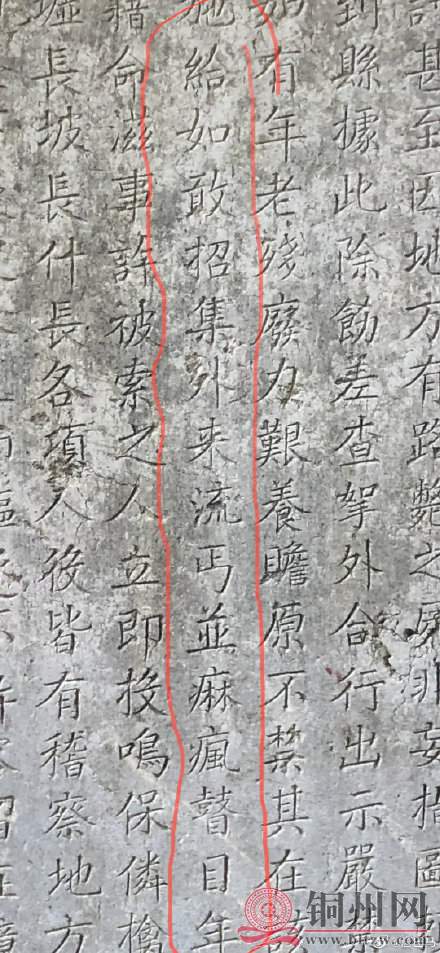 甚至因地方有路斃之屍非妄指圖
到縣據此除飭差查拏外合行出示嚴禁
有年老殘廢力艱養贍原不禁其在該
施給如敢招集外来流丐並痲瘋瞽目年
藉命滋事許被索之人立即投鳴保隣擒
墟長坡長什長各項人役皆有稽察地方
铜州网
www.bltzw.com